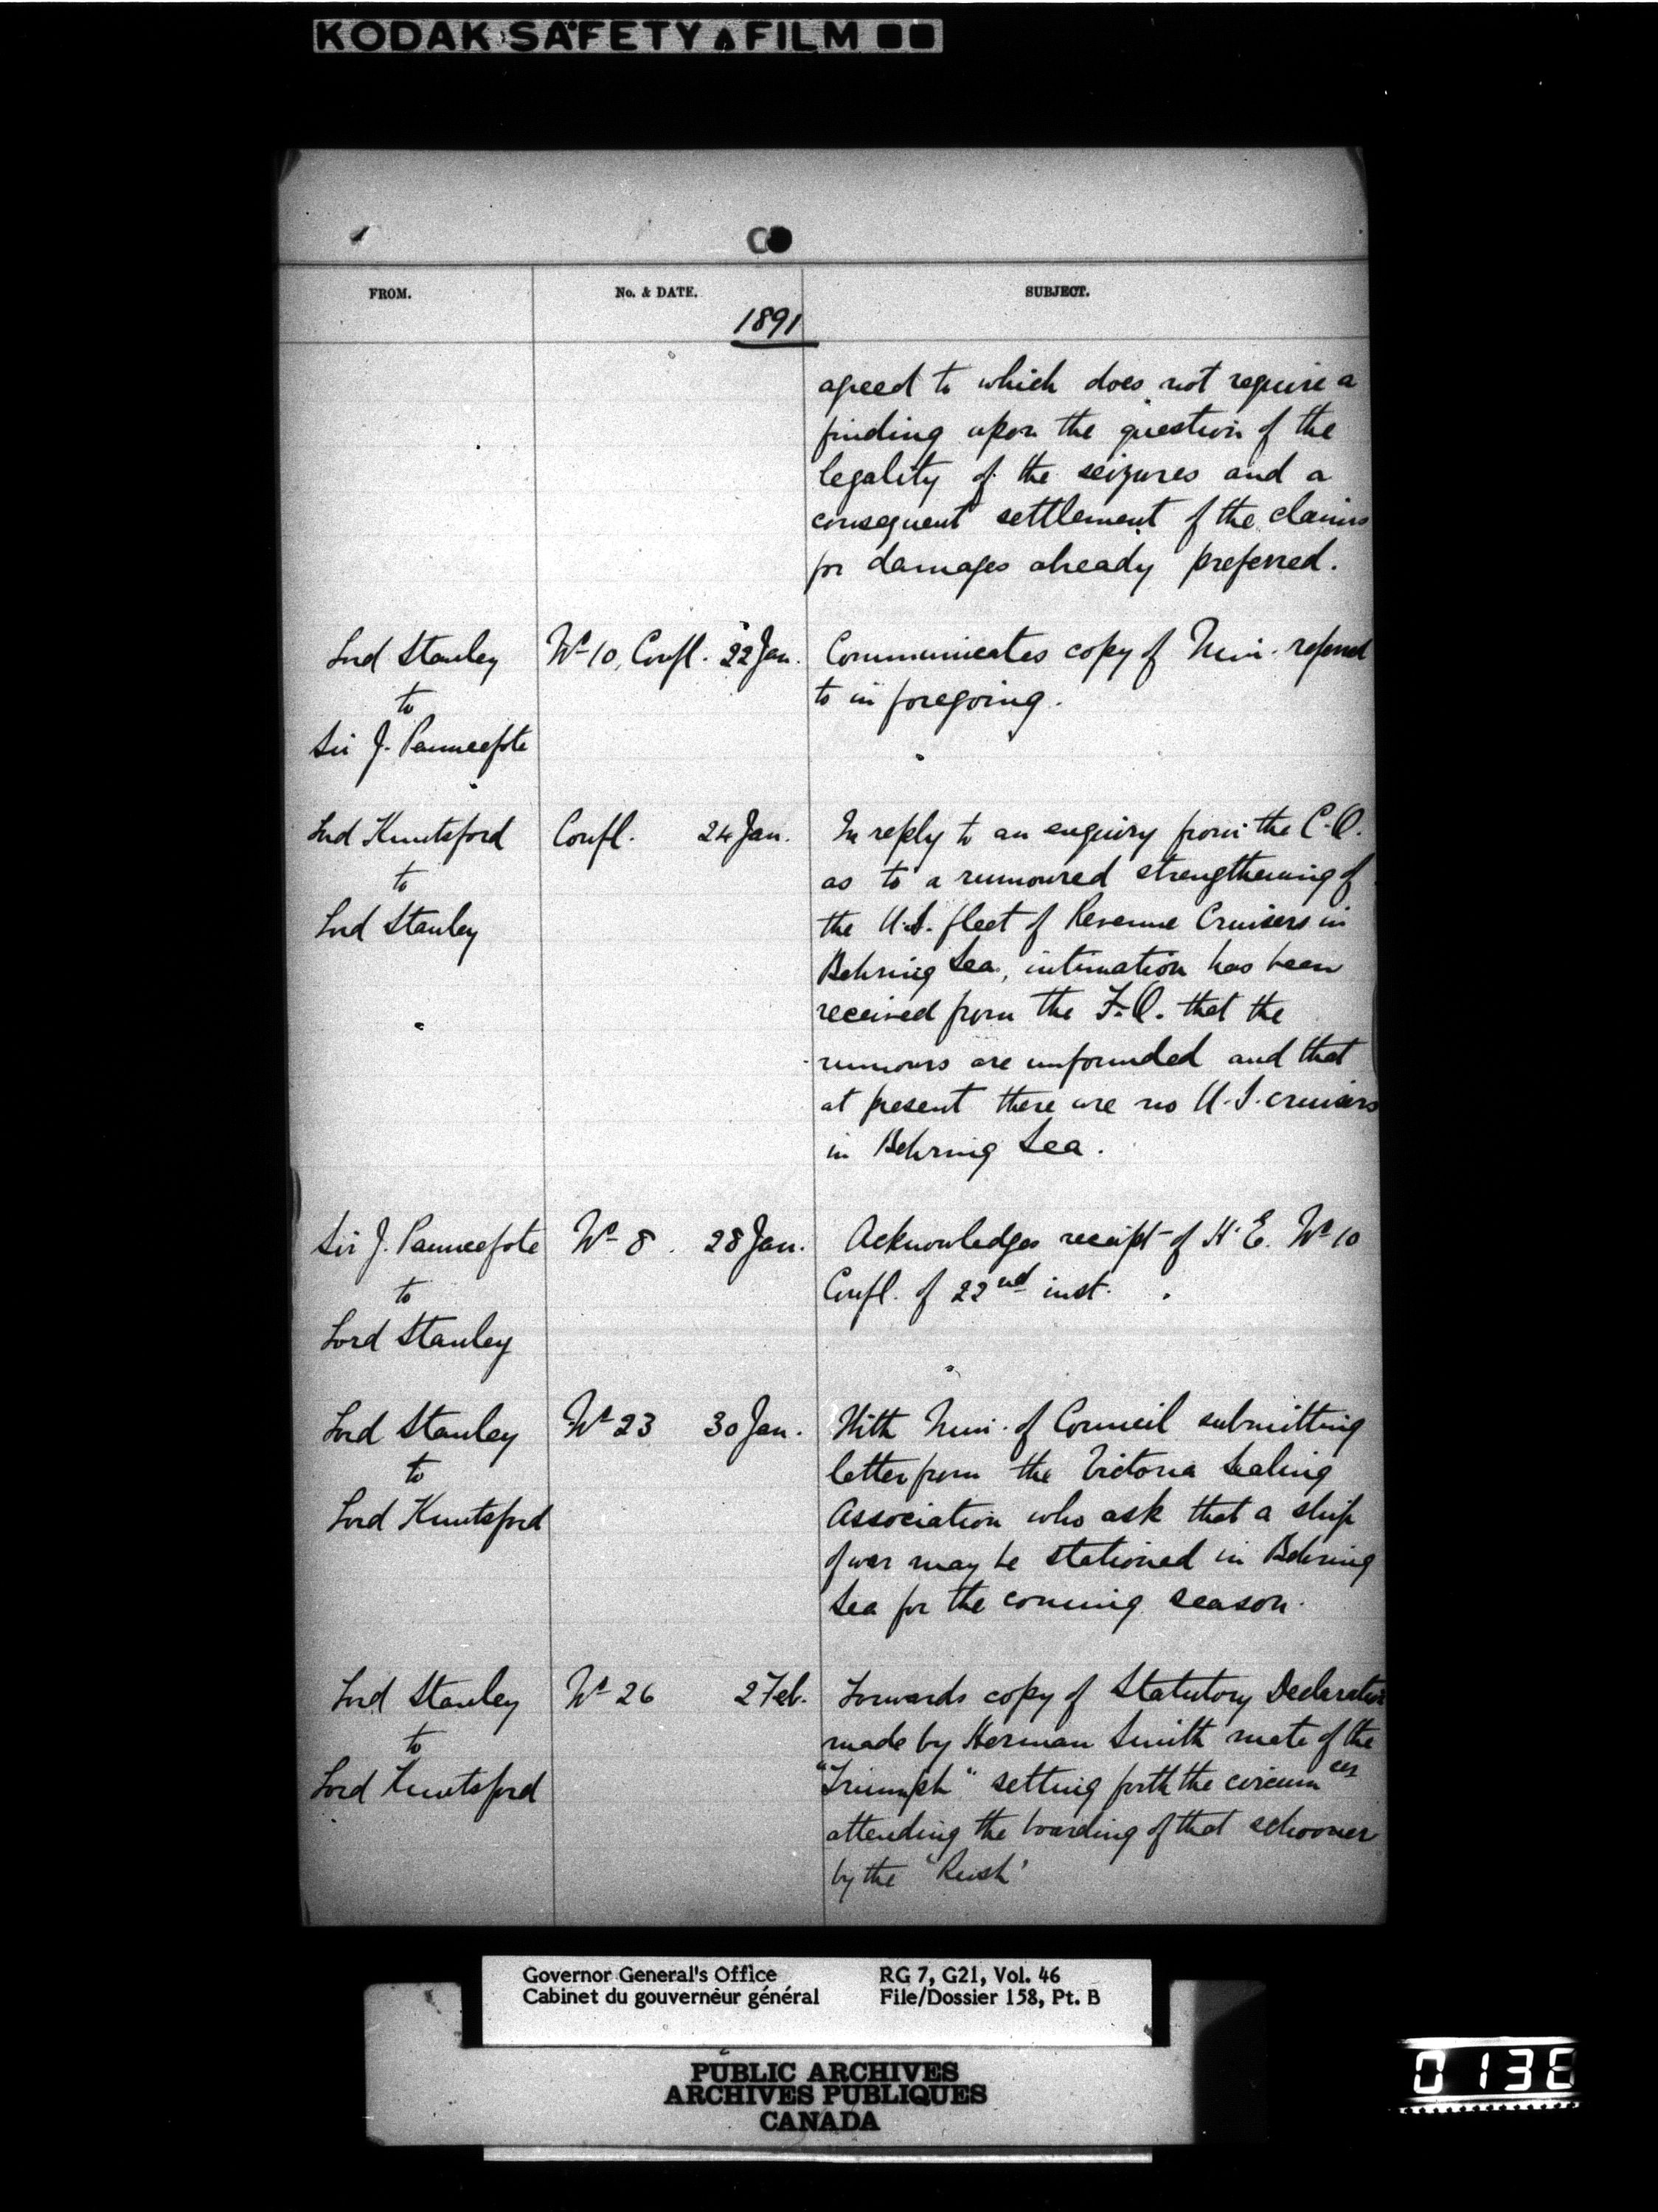 KODAK SAFETY FILM
FROM. No. & DATE. SUBJECT.
1891
agreed to which does not require a
finding upon the question of the
legality of the seizures and a
consequent settlement of the claims
for damages already preferred.
Lord Stanley No 10, Confl. 22 Jan. Communicates copy of Min. referred
to to in foregoing.
Sir J. Pauncefote
Lord Knutsford Confl. 24 Jan. In reply to an enquiry from the C.O.
to as to a rumoured strengthening of
Lord Stanley the U.S. fleet of Revenue Cruisers in
Behring Sea, intimation has been
received from the F.O. that the
rumours are unfounded and that
at present there are no U.S. cruisers
in Behring Sea.
Sir J. Pauncefote No 8. 28 Jan. Acknowledges receipt of H.E. No 10
to Confl. of 22nd inst.
Lord Stanley
Lord Stanley No 23 30 Jan. With Min. of Council submitting
to letter from the Victoria Sealing
Lord Knutsford Association who ask that a ship
of war may be stationed in Behring
Sea for the coming season.
Lord Stanley No 26 2 Feb. Forwards copy of Statutory Declaration
to made by Herman Smith mate of the
Lord Knutsford "Triumph" setting forth the circumces
attending the boarding of that schooner
by the 'Rush'
Governor General's Office RG 7, G21, Vol. 46
Cabinet du gouverneur général File/Dossier 158, Pt. B
PUBLIC ARCHIVES
ARCHIVES PUBLIQUES
CANADA